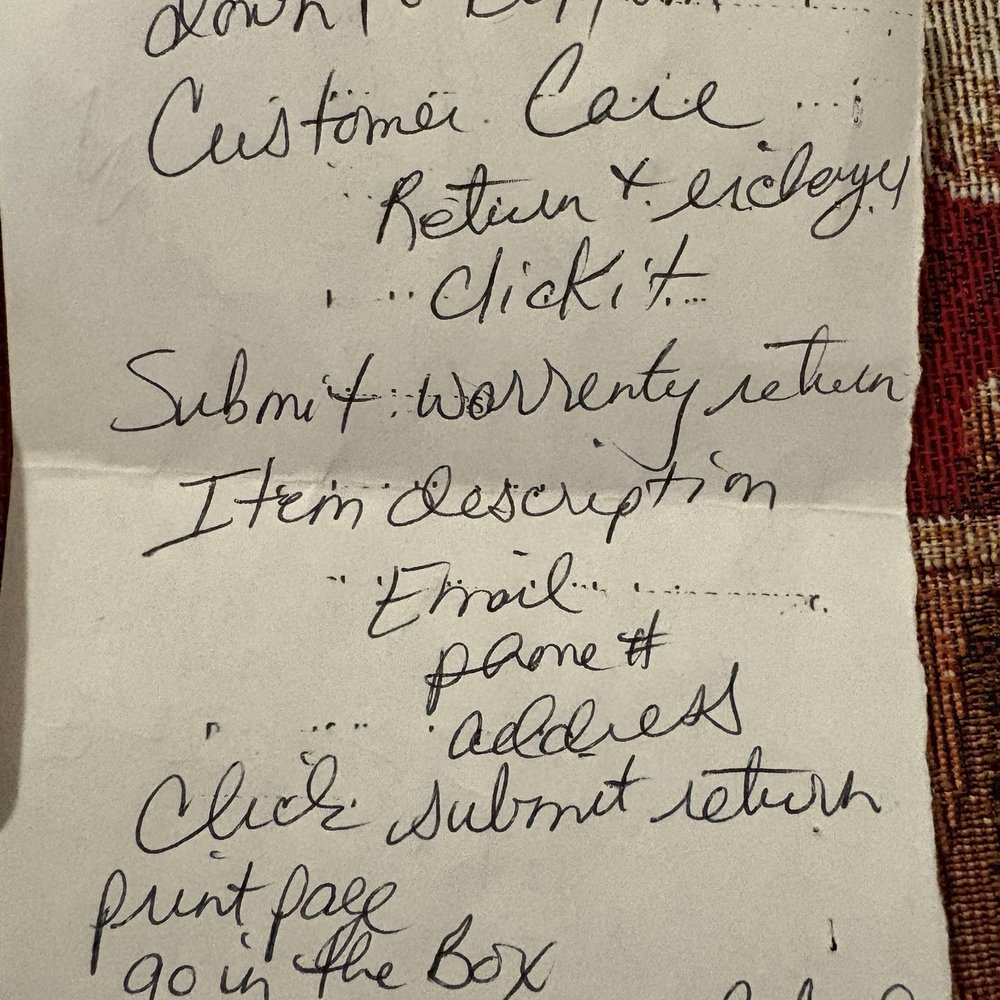 down to
Customer Care
Return +
click it
Submit warrenty return
Item description
Email
phone #
address
Click submit return
print page
go in the Box